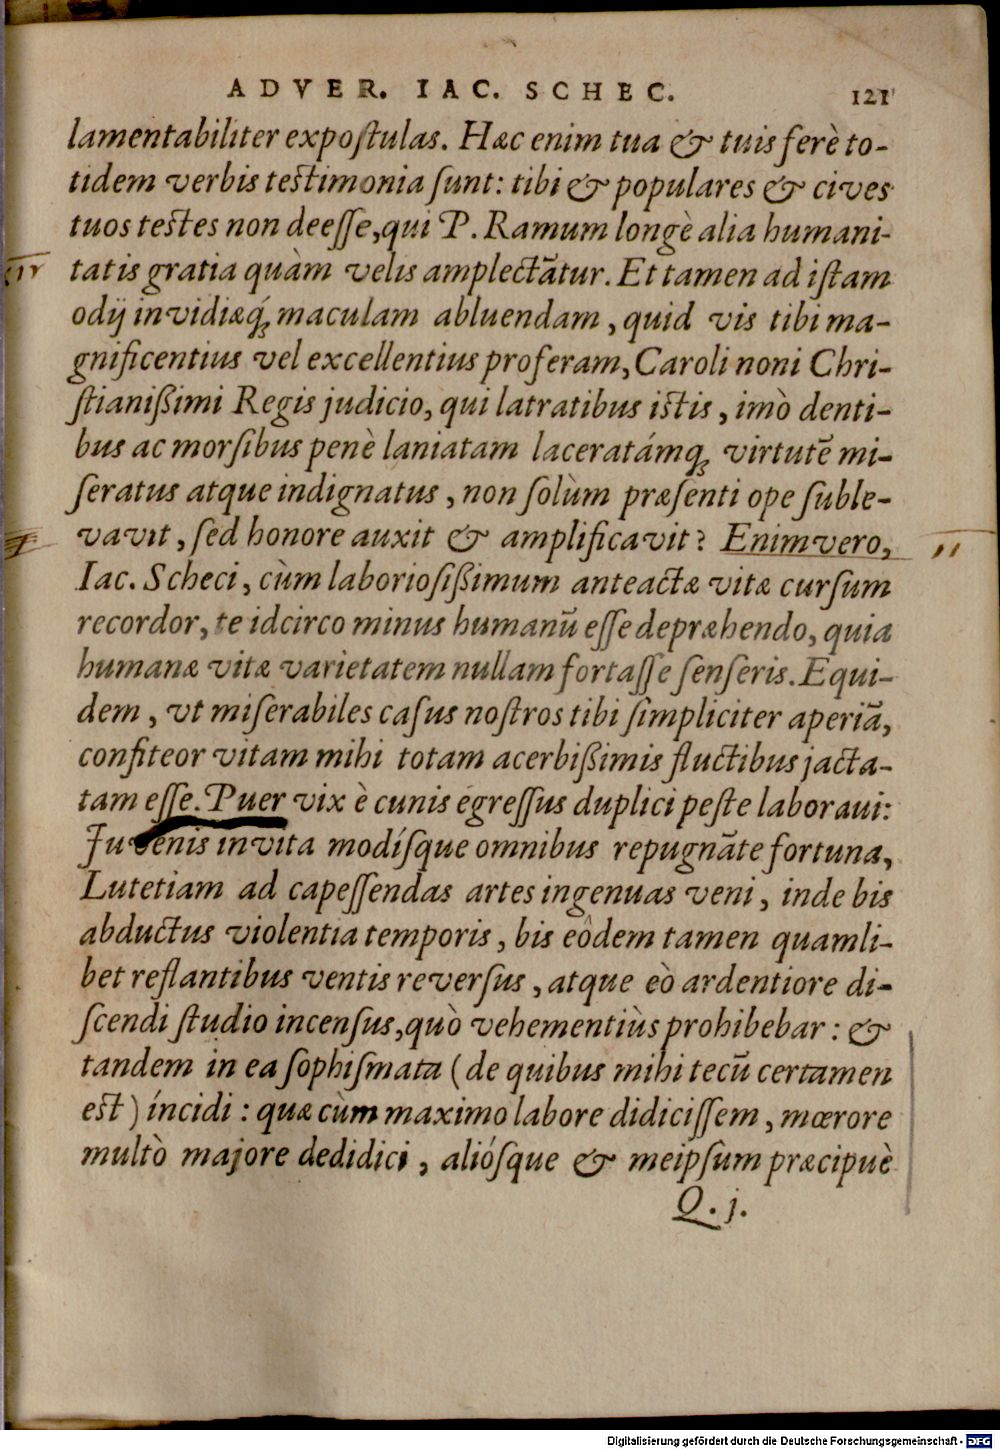 ADVER. IAC. SCHEC. 121
lamentabiliter expoſtulas. Hæc enim tua & tuis ferè to-
tidem verbis teſtimonia ſunt: tibi & populares & cives
tuos teſtes non deeſſe, qui P. Ramum longè alia humani-
tatis gratia quàm velis amplectātur. Et tamen ad iſtam
odij invidiæq́; maculam abluendam, quid vis tibi ma-
gnificentius vel excellentius proferam, Caroli noni Chri-
ſtianißimi Regis judicio, qui latratibus iſtis, imò denti-
bus ac morſibus penè laniatam laceratámq; virtutē mi-
ſeratus atque indignatus, non ſolùm præſenti ope ſuble-
vavit, ſed honore auxit & amplificavit? Enimvero,
Iac. Scheci, cùm laborioſißimum anteactæ vitæ curſum
recordor, te idcirco minus humanū eſſe depræhendo, quia
humanæ vitæ varietatem nullam fortaſſe ſenſeris. Equi-
dem, vt miſerabiles caſus noſtros tibi ſimpliciter aperiā,
confiteor vitam mihi totam acerbißimis fluctibus jacta-
tam eſſe. Puer vix è cunis egreſſus duplici peſte laboraui:
Juvenis invita modíſque omnibus repugnāte fortuna,
Lutetiam ad capeſſendas artes ingenuas veni, inde bis
abductus violentia temporis, bis eôdem tamen quamli-
bet reflantibus ventis reverſus, atque eò ardentiore di-
ſcendi ſtudio incenſus, quò vehementiùs prohibebar: &
tandem in ea ſophiſmata (de quibus mihi tecū certamen
eſt) íncidi: quæ cùm maximo labore didiciſſem, mœrore
multò majore dedidici, alióſque & meipſum præcipuè
Q. j.
Digitalisierung gefördert durch die Deutsche Forschungsgemeinschaft - DFG